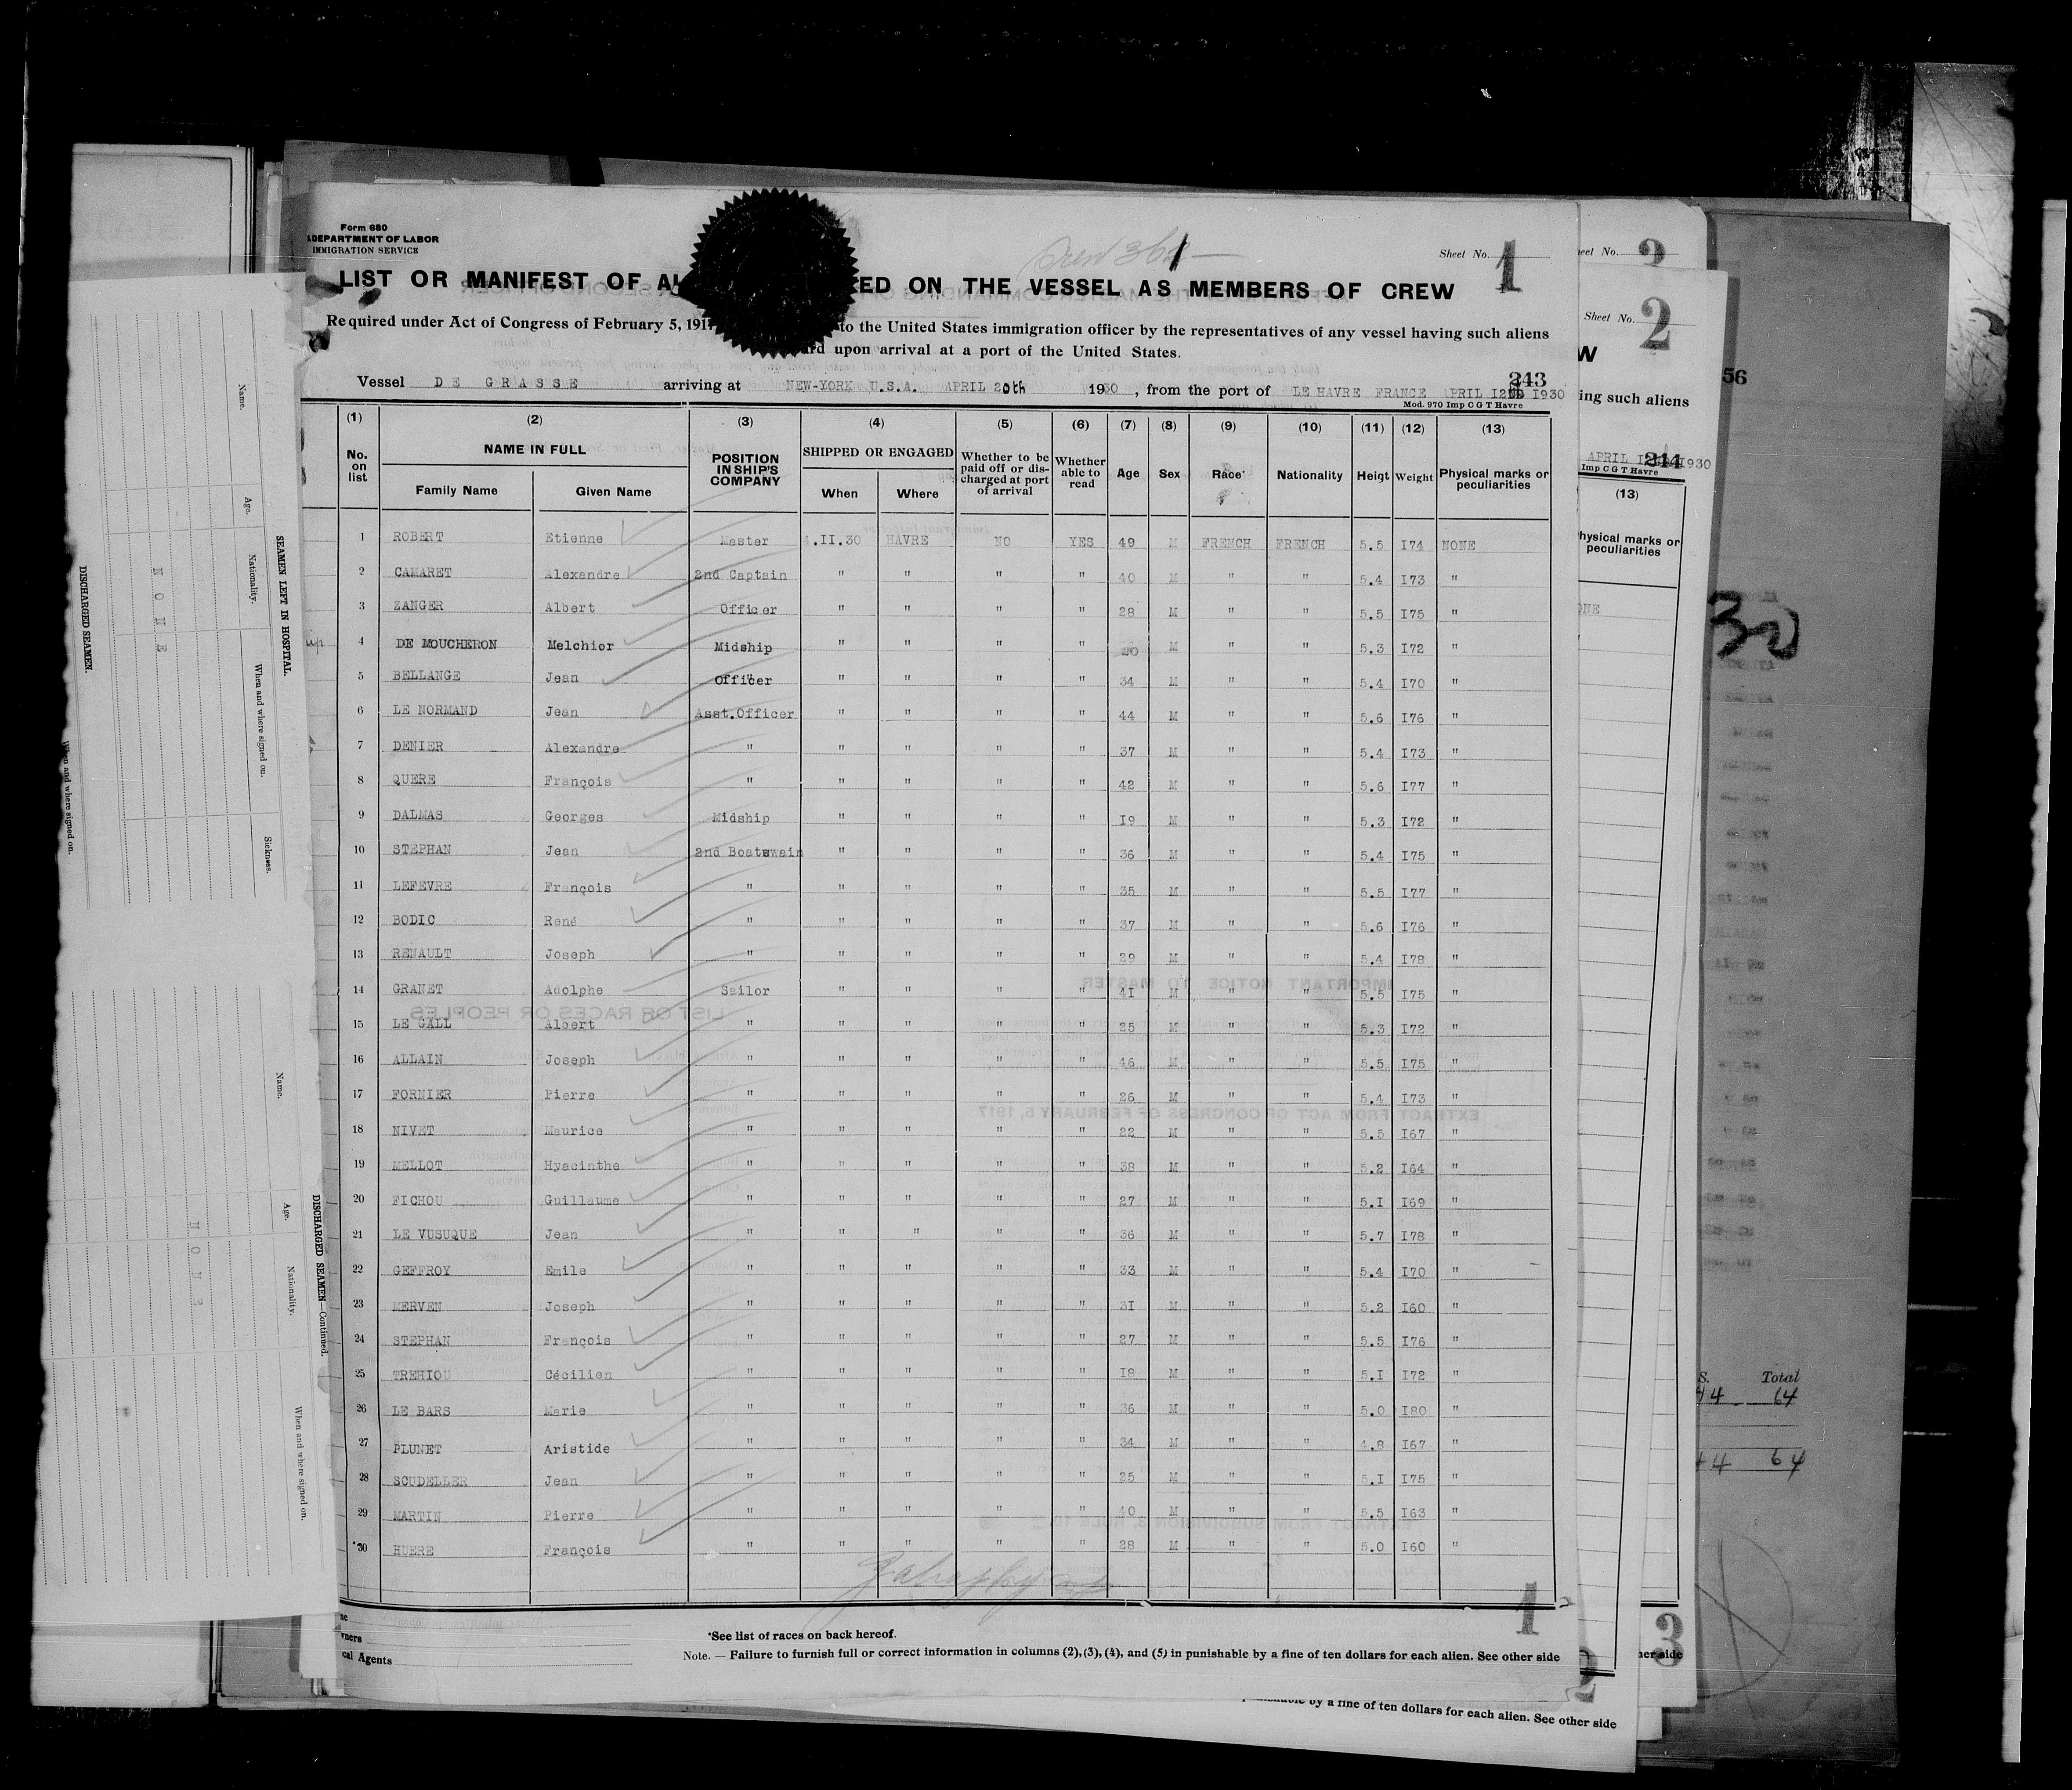 Form 680
DEPARTMENT OF LABOR
IMMIGRATION SERVICE
Sheet No. 1
LIST OR MANIFEST OF ED ON THE VESSEL AS MEMBERS OF CREW
Required under Act of Congress of February 5, 191 to the United States immigration officer by the representatives of any vessel having such aliens
upon arrival at a port of the United States.
243
Vessel DE GRASSE arriving at NEW-YORK U.S.A. APRIL 20th 1930, from the port of LE HAVRE FRANCE APRIL 1930
Mod. 970 Imp C G T Havre
(1) (2) (3) (4) (5) (6) (7) (8) (9) (10) (11) (12) (13)
No. on list NAME IN FULL Family Name Given Name POSITION IN SHIP'S COMPANY SHIPPED OR ENGAGED When Where Whether to be paid off or discharged at port of arrival Whether able to read Age Sex Race* Nationality Heigt Weight Physical marks or peculiarities
1 ROBERT Etienne Master .II.30 HAVRE NO YES 49 M FRENCH FRENCH 5.5 I74 NONE
2 CAMARET Alexandre 2nd Captain " " " " 40 M " " 5.4 I73 "
3 ZANGER Albert Officer " " " " 28 M " " 5.5 I75 "
4 DE MOUCHERON Melchior Midship " " " " 20 M " " 5.3 I72 "
5 BELLANGE Jean Officer " " " " 34 M " " 5.4 I70 "
6 LE NORMAND Jean Asst.Officer " " " " 44 M " " 5.6 I76 "
7 DENIER Alexandre " " " " " 37 M " " 5.4 I73 "
8 QUERE François " " " " " 42 M " " 5.6 I77 "
9 DALMAS Georges Midship " " " " I9 M " " 5.3 I72 "
10 STEPHAN Jean 2nd Boatswain " " " " 36 M " " 5.4 I75 "
11 LEFEVRE François " " " " " 35 M " " 5.5 I77 "
12 BODIC René " " " " " 37 M " " 5.6 I76 "
13 RENAULT Joseph " " " " " 29 M " " 5.4 I78 "
14 GRANET Adolphe Sailor " " " " 4I M " " 5.5 I75 "
15 LE GALL Albert " " " " " 25 M " " 5.3 I72 "
16 ALLAIN Joseph " " " " " 46 M " " 5.5 I75 "
17 FORNIER Pierre " " " " " 26 M " " 5.4 I73 "
18 NIVET Maurice " " " " " 22 M " " 5.5 I67 "
19 MELLOT Hyacinthe " " " " " 38 M " " 5.2 I64 "
20 FICHOU Guillaume " " " " " 27 M " " 5.I I69 "
21 LE VUSUQUE Jean " " " " " 36 M " " 5.7 I78 "
22 GEFFROY Emile " " " " " 33 M " " 5.4 I70 "
23 MERVEN Joseph " " " " " 3I M " " 5.2 I60 "
24 STEPHAN François " " " " " 27 M " " 5.5 I76 "
25 TREHIOU Cécilien " " " " " I8 M " " 5.I I72 "
26 LE BARS Marie " " " " " 36 M " " 5.0 I80 "
27 PLUNET Aristide " " " " " 34 M " " 4.8 I67 "
28 SCUDELLER Jean " " " " " 25 M " " 5.I I75 "
29 MARTIN Pierre " " " " " 40 M " " 5.5 I63 "
30 HUERE François " " " " " 28 M " " 5.0 I60 "
1
*See list of races on back hereof.
Note. — Failure to furnish full or correct information in columns (2), (3), (4), and (5) in punishable by a fine of ten dollars for each alien. See other side
by a fine of ten dollars for each alien. See other side
SEAMEN LEFT IN HOSPITAL.
Name. Age. Nationality. When and where signed on. Sickness.
NONE
DISCHARGED SEAMEN.
When and where signed on.
DISCHARGED SEAMEN—Continued.
Name. Age. Nationality. When and where signed on.
NONE
Sheet No. 2
ing such aliens
244
APRIL 1930
Imp C G T Havre
(13)
hysical marks or peculiarities
56
30
S. Total
44 64
44 64
3